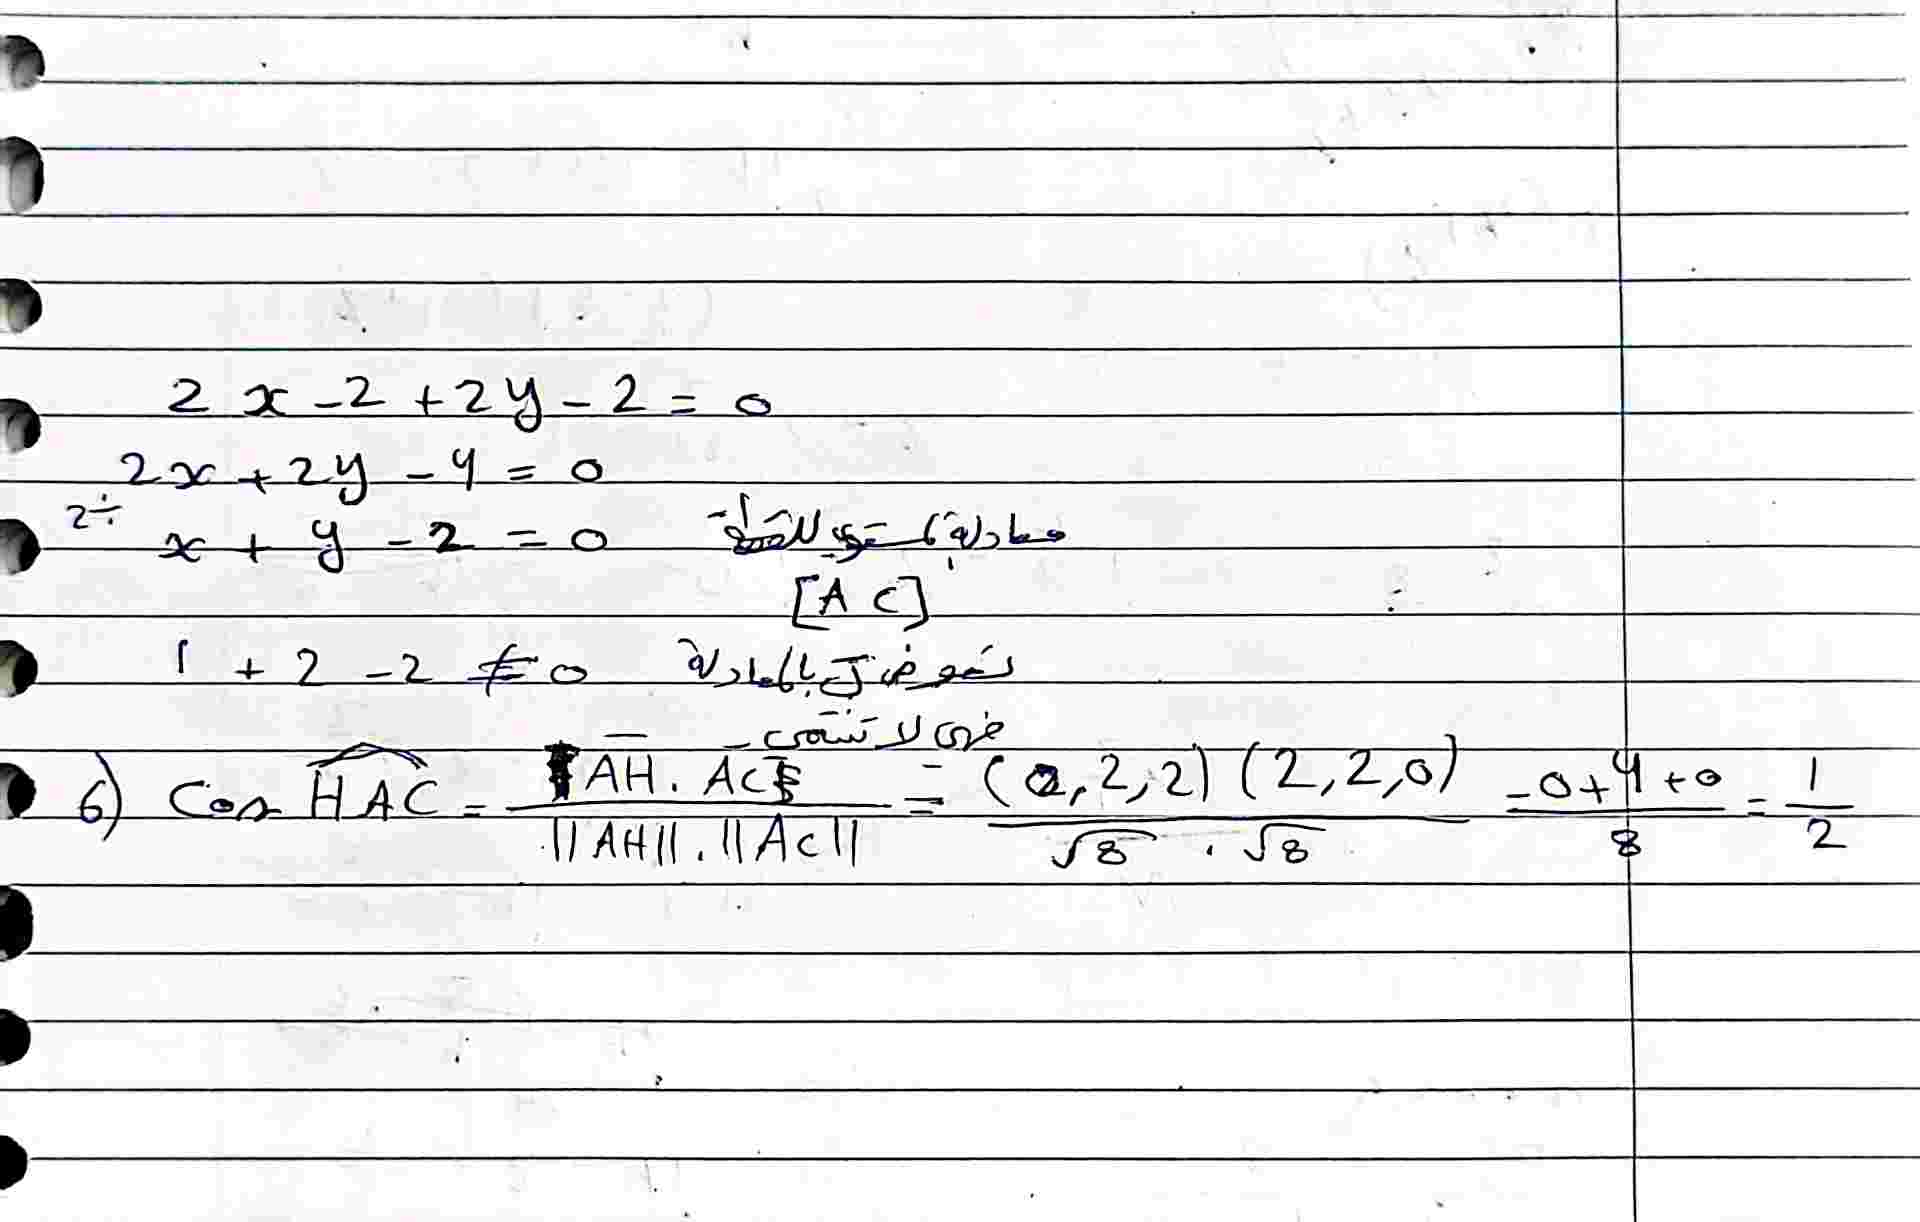 2x - 2 + 2y - 2 = 0
2x + 2y - 4 = 0
2÷ x + y - 2 = 0 معادلة المستوي للقطعة
[AC]
1 + 2 - 2 ≠ 0 نعوض J بالمعادلة
فهي لا تنتمي
6) Cos HAC = AH . AC / ||AH|| . ||AC|| = (0, 2, 2) (2, 2, 0) / √8 . √8 = 0 + 4 + 0 / 8 = 1 / 2